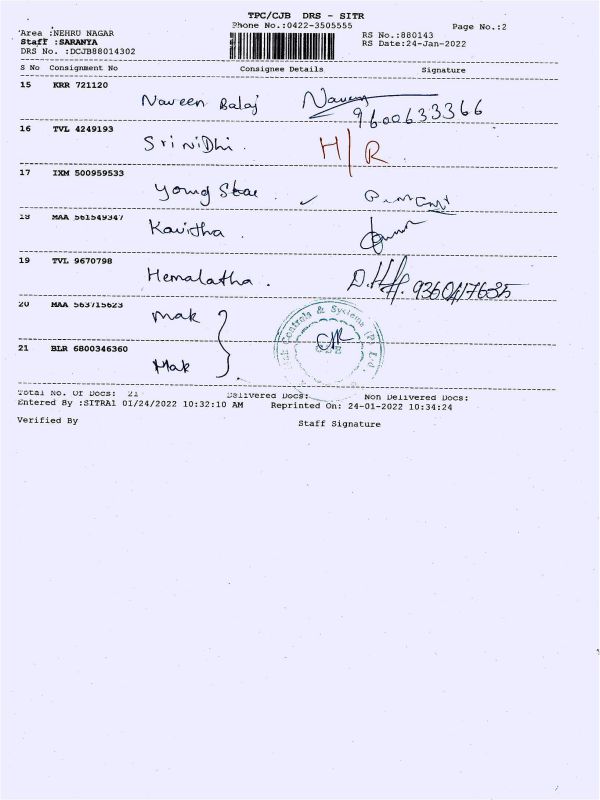 TPC/CJB DRS - SITR
Phone No.:0422-3505555 Page No.:2
Area :NEHRU NAGAR RS No.:880143
Staff :SARANYA RS Date:24-Jan-2022
DRS No. :DCJB88014302
S No Consignment No Consignee Details Signature
15 KRR 721120
Naveen Balaj Naveen
9600633366
16 TVL 4249193
SriNiDhi. H/R
17 IXM 500959533
Young Stae.
18 MAA 561549347
Kavitha.
19 TVL 9670798
Hemalatha. D.H
20 MAA 563715623
Mak
Controls & Systems (P) Ltd
21 BLR 6800346360
Mak
Total No. Of Docs: 21 Delivered Docs: Non Delivered Docs:
Entered By :SITRA1 01/24/2022 10:32:10 AM Reprinted On: 24-01-2022 10:34:24
Verified By Staff Signature